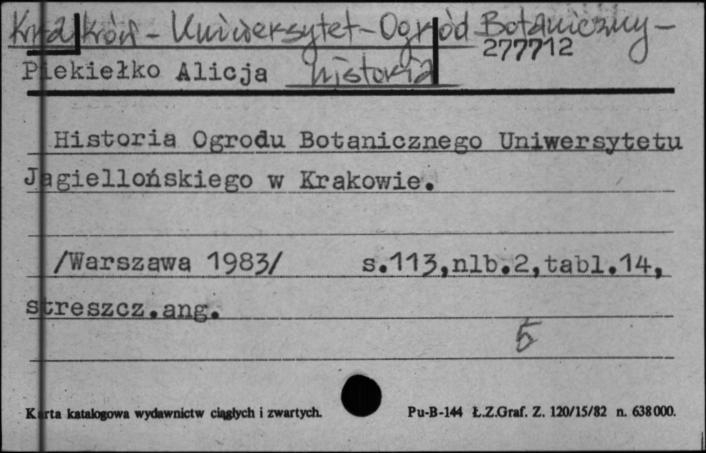 Kraków - Uniwersytet - Ogród Botaniczny -
277712
Piekiełko Alicja historia
Historia Ogrodu Botanicznego Uniwersytetu
Jagiellońskiego w Krakowie.
/Warszawa 1983/ s.113,nlb.2,tabl.14,
streszcz.ang.
5
Karta katalogowa wydawnictw ciągłych i zwartych. Pu-B-144 Ł.Z.Graf. Z. 120/15/82 n. 638000.